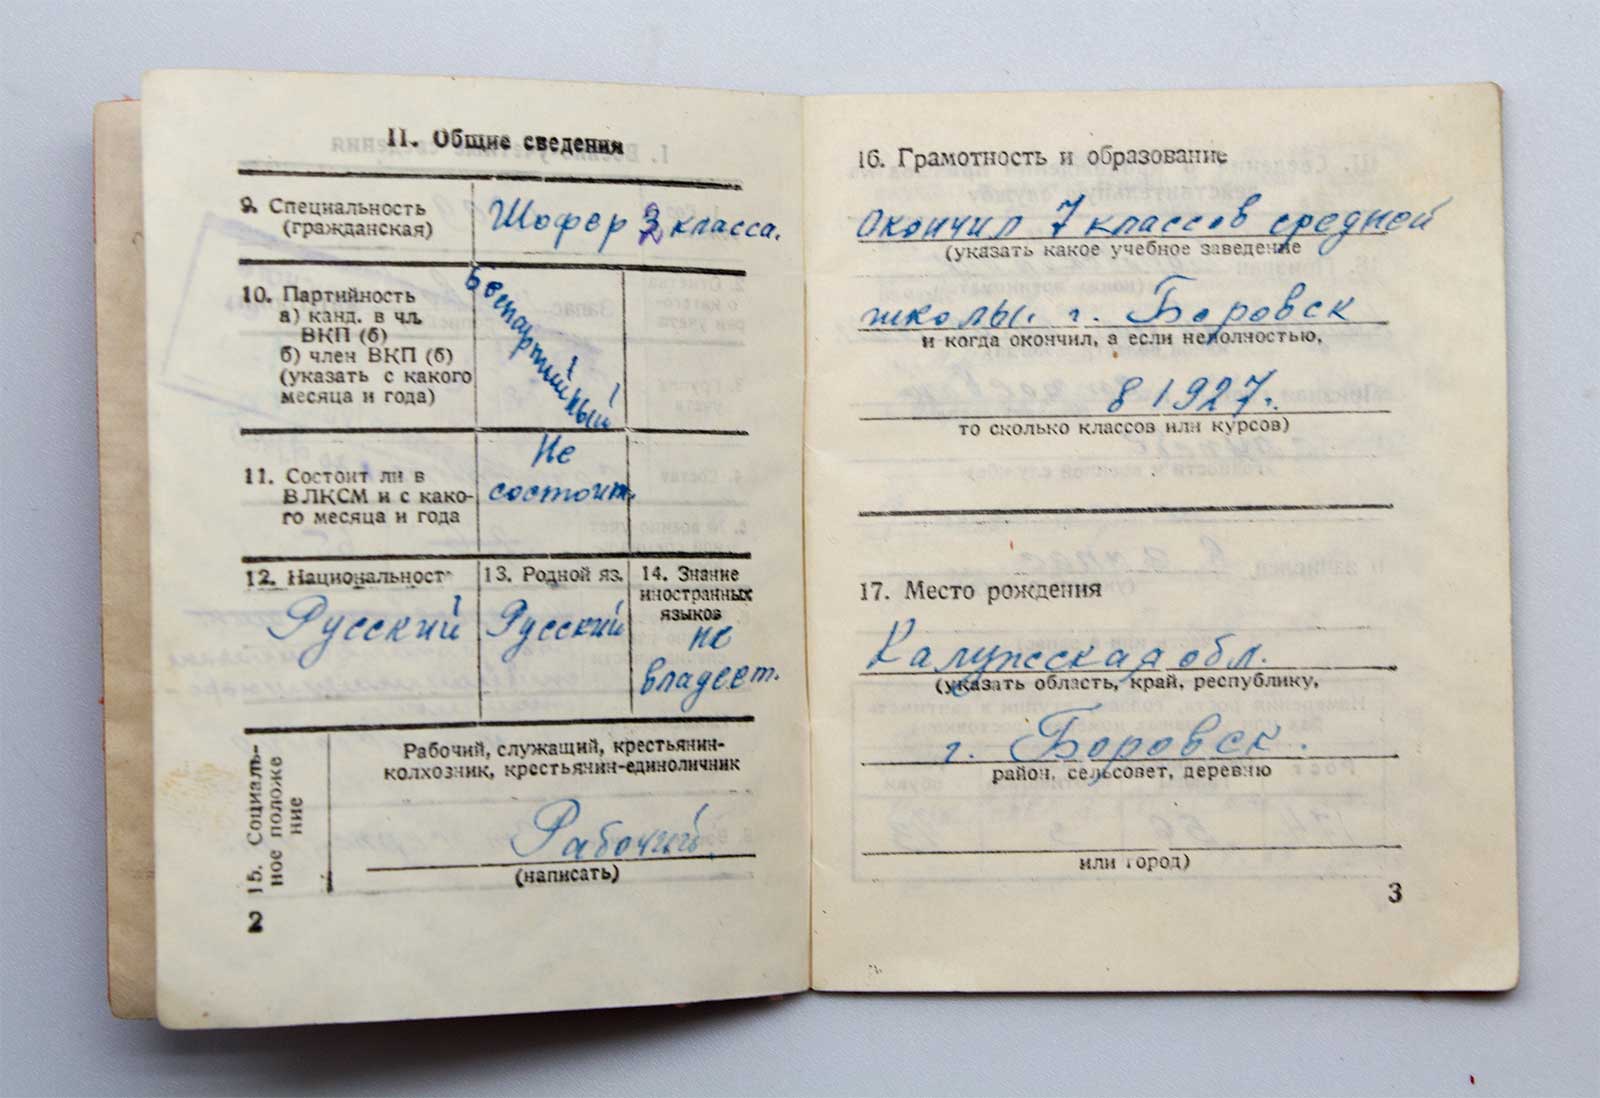 II. Общие сведения
9. Специальность
(гражданская)
Шофер 3 класса.
10. Партийность
а) канд. в чл.
ВКП (б)
б) член ВКП (б)
(указать с какого
месяца и года)
Беспартийный
11. Состоит ли в
ВЛКСМ и с како-
го месяца и года
Не
состоит.
12. Национальность
Русский
13. Родной яз.
Русский
14. Знание
иностранных
языков
не
владеет.
15. Социаль-
ное положе
ние
Рабочий, служащий, крестьянин-
колхозник, крестьянин-единоличник
Рабочий
(написать)
2
16. Грамотность и образование
окончил 7 классов средней
(указать какое учебное заведение
школы. г. Боровск
и когда окончил, а если неполностью,
в 1927г.
то сколько классов или курсов)
17. Место рождения
Калужская обл.
(указать область, край, республику,
г. Боровск.
район, сельсовет, деревню
или город)
3